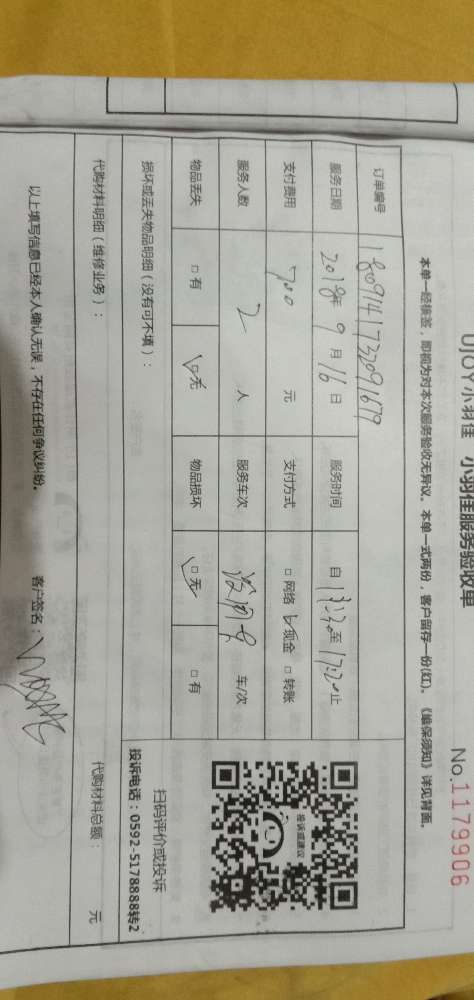 UJOY小羽佳 小羽佳服务验收单
No.1179906
本单一经核签，即视为对本次服务验收无异议。本单一式两份，客户留存一份(红)。《维保须知》详见背面。
订单编号 1809141732091679
服务日期 2018年 9 月 16 日 服务时间 自 13:30 至 17:20 止
支付费用 700 元 支付方式 □ 网络 □ 现金 □ 转账
服务人数 2 人 服务车次 车/次
物品丢失 □ 有 □ 无 物品损坏 □ 无 □ 有
投诉或建议
扫码评价或投诉
投诉电话：0592-5178888转2
损坏或丢失物品明细（没有可不填）：
代购材料明细（维修业务）： 代购材料总额： 元
以上填写信息已经本人确认无误，不存在任何争议纠纷。 客户签名：